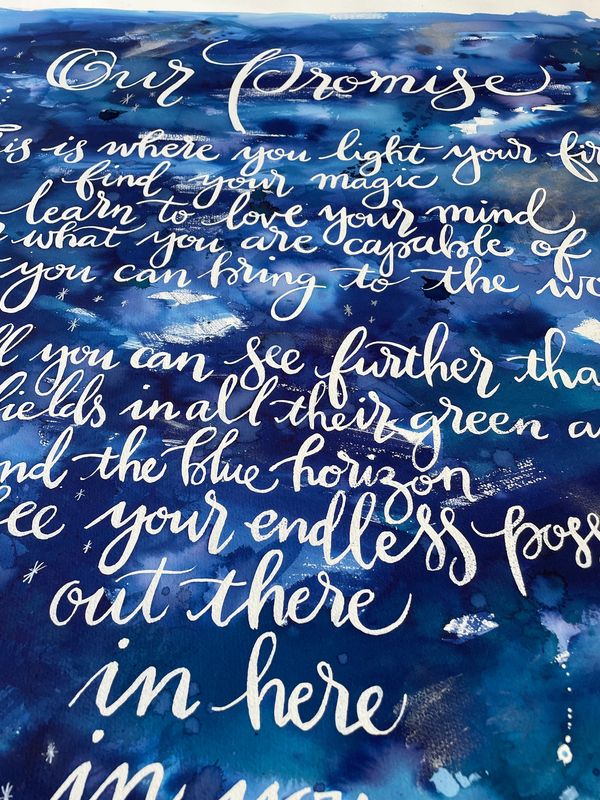 Our Promise
is is where you light your fir
find your magic
learn to love your mind
what you are capable of
you can bring to the wo
ll you can see further tha
fields in all their green a
nd the blue horizon
ee your endless poss
out there
in here
in you